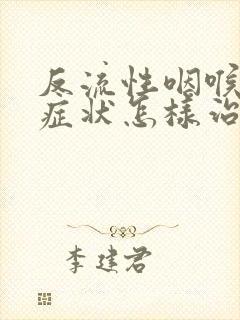 反流性咽喉
症状怎样治
李建君